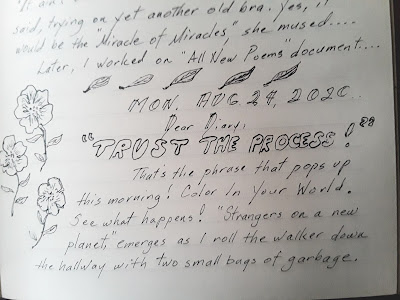 said, trying on yet another old bra. Yes, it
would be the "Miracle of Miracles," she mused....
Later, I worked on "All New Poems" document....
MON. AUG. 24, 2020..
Dear Diary,
"TRUST THE PROCESS!"
That's the phrase that pops up
this morning! Color In Your World.
See what happens! "Strangers on a new
planet," emerges as I roll the walker down
the hallway with two small bags of garbage.